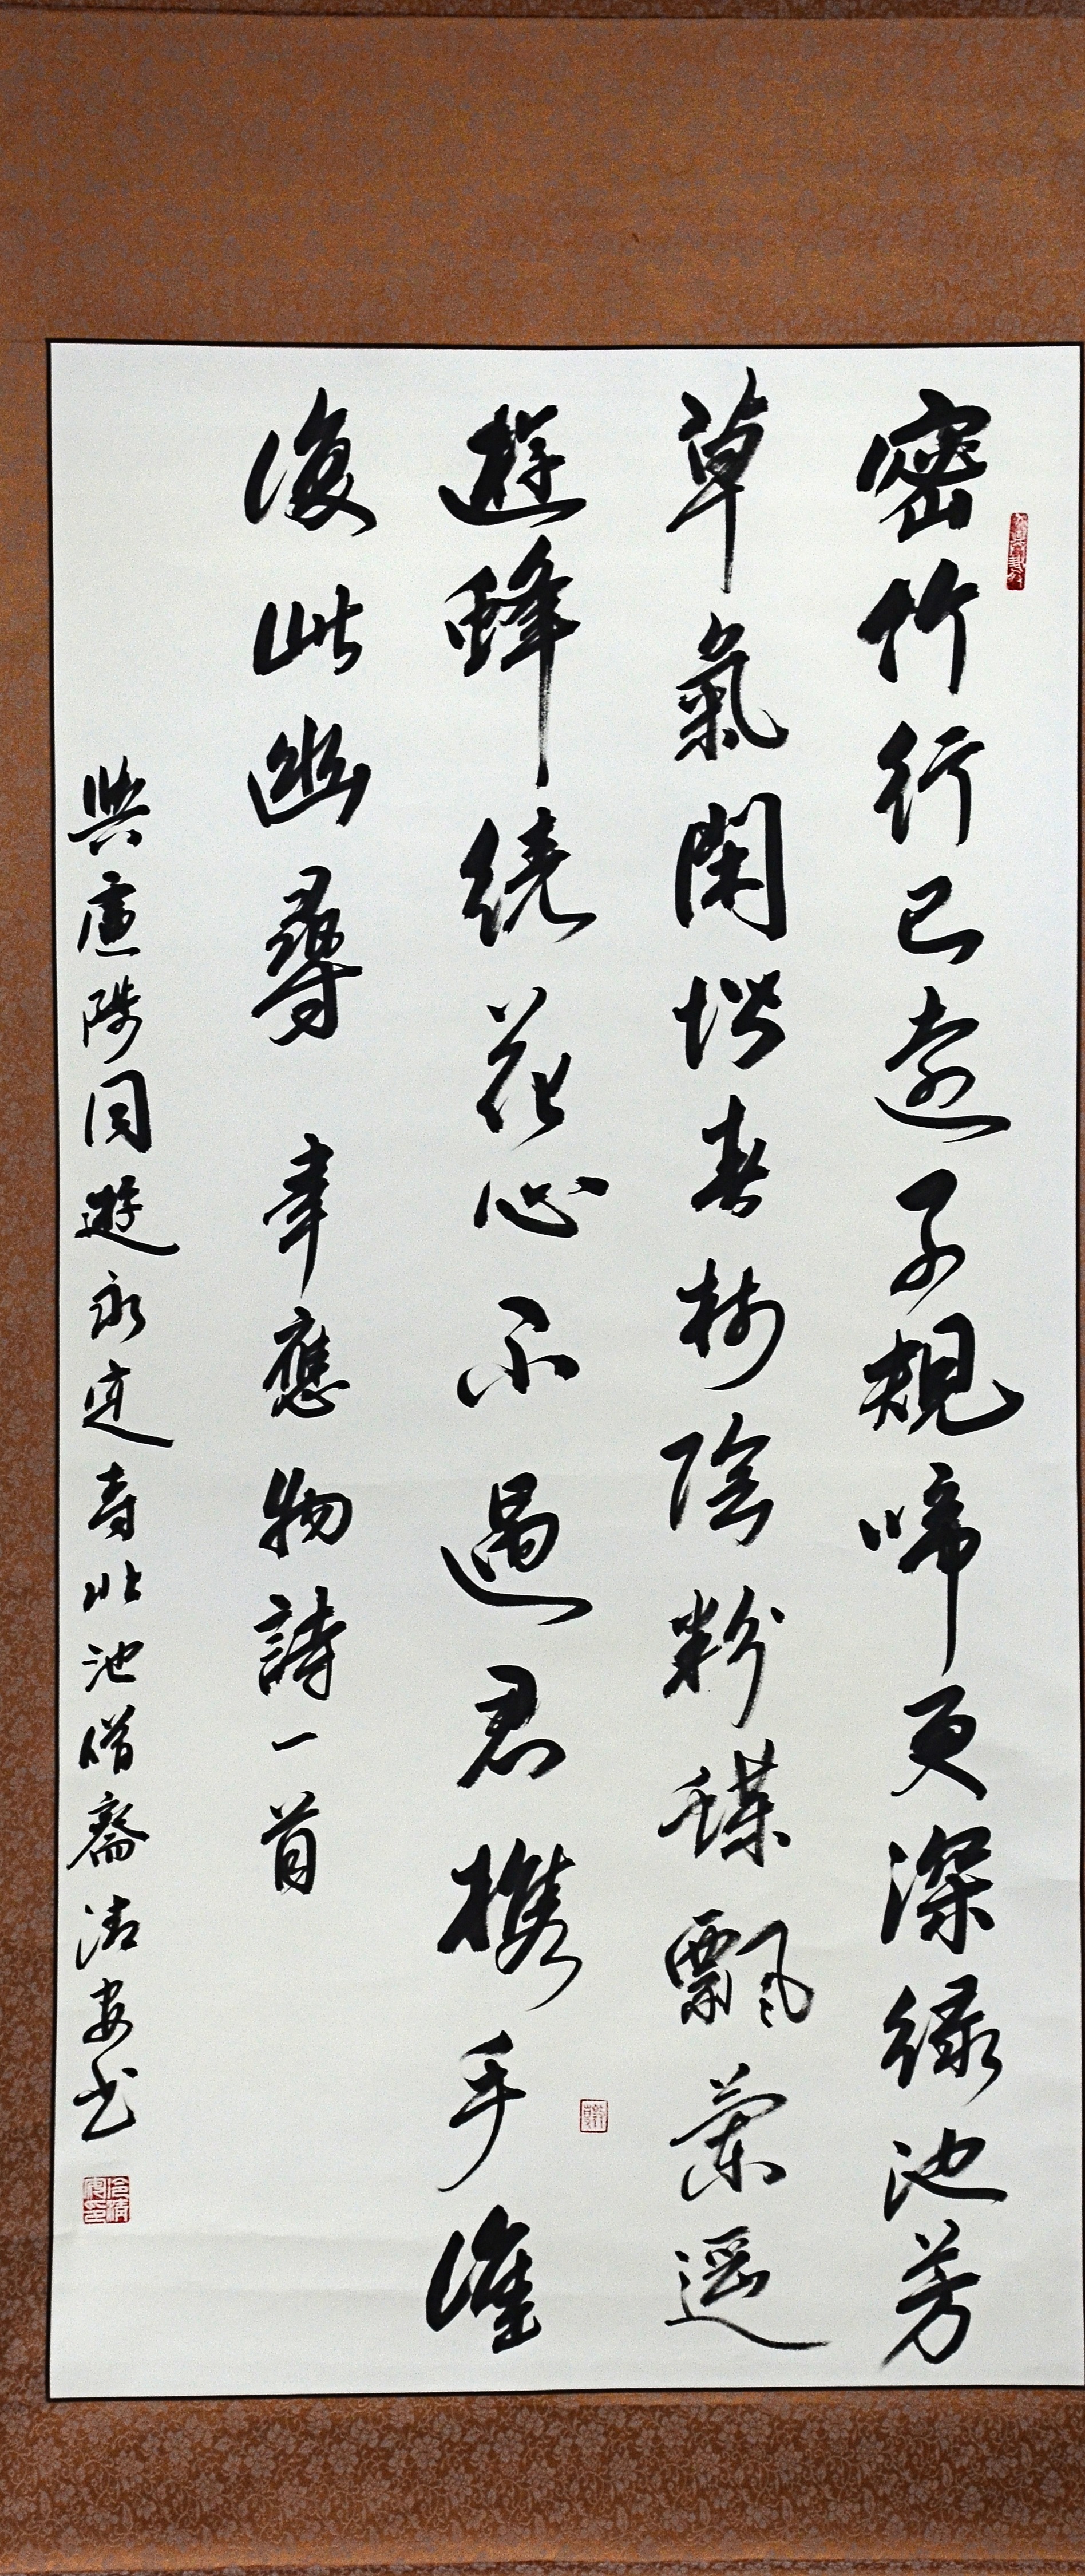 密竹行已遠子規啼更深綠池芳
草氣閑堦春樹陰粉蝶飄蘭逕
遊蜂繞花心不遇君攜手誰
復此幽尋 韋應物詩一首
與盧陟同遊永定寺北池僧齋 清安书